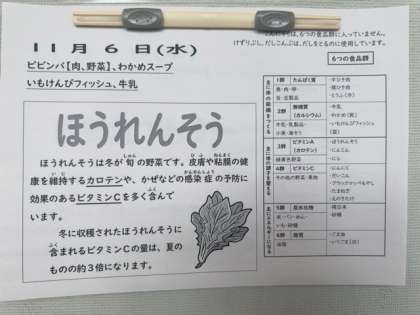 11月6日(水)
ビビンバ【肉、野菜】、わかめスープ
いもけんぴフィッシュ、牛乳
ほうれんそう
ほうれんそうは冬が旬の野菜です。皮膚や粘膜の健
康を維持するカロテンや、かぜなどの感染症の予防に
効果のあるビタミンCを多く含んで
います。
冬に収穫されたほうれんそうに
含まれるビタミンCの量は、夏の
ものの約3倍になります。
、6つの食品群に入っていません。
けずりぶし、だしこんぶは、だしをとるのに使用しています。
6つの食品群
1群 たんぱく質
魚・肉・卵・
豆・豆製品
2群 無機質
(カルシウム)
牛乳・乳製品・
小魚・海そう
・牛乳
・わかめ
・いもけんぴフィッシュ
3群 ビタミンA
(カロテン)
緑黄色野菜
・ほうれんそう
・にんじん
4群 ビタミンC
その他の野菜・果物
・にんにく
・だいこん
・ブラックマッペもやし
・たまねぎ
・えのきたけ
5群 炭水化物
米・パン・めん・
いも・砂糖
・砂糖
6群 脂質
油脂
・ごま油